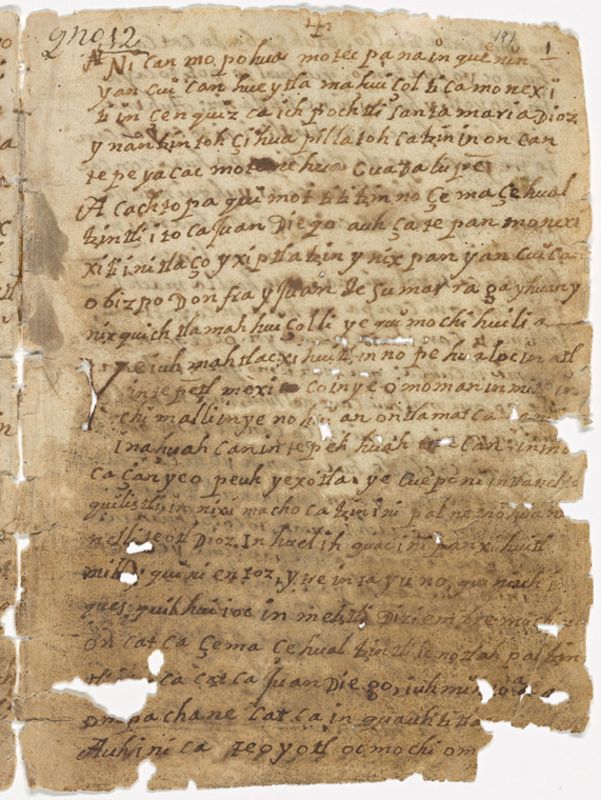 gno12
191 1
Nican mo pohua motec pana in quenin
yancuican hueytla mahuiçoltica monexi
ti in çenquizca ich pochtli santa maria Dioz
y nantzin toh çihua pillatoh catzin in on can
tepe yacac motenehua Guadalupe
Acachtopa quimottititzin no çe maçehual
tzintli itoca Juan Diego auh ça te pan monexi
xiti initlaço yxiptlatzin ynix pan yancuican
obizpo Don fray Juan de çumarraga yhuan y
nixquich tlamahhuiçolli ye quimochihuilia
Ye iuh mahtlacxihuitl in no pehualoc in atl
in tepetl mexico in ye omoman in mitl in
chimalli in ye nohuian ontlamatcamani
in ahuahcan in tepehuahcan in mo
ca çan yeo peuh ye xotla ye cueponi in tlaneltoq
quilistli in nixi machocatzin in i pal nemohuani
nelli teotl Dioz In huel ih quac in ipan xihuitl
mill y quinientoz, y treinta y uno, quin iuh i
quezquilhuioc in metztli Diziembre mo
on catca çe maçehual tzintli icnotlah paltzin
itoca catca Juan Diego iuh mihtoa
ompa chane catca in quauhtitla
Auh in ica teoyotl oc mochi om